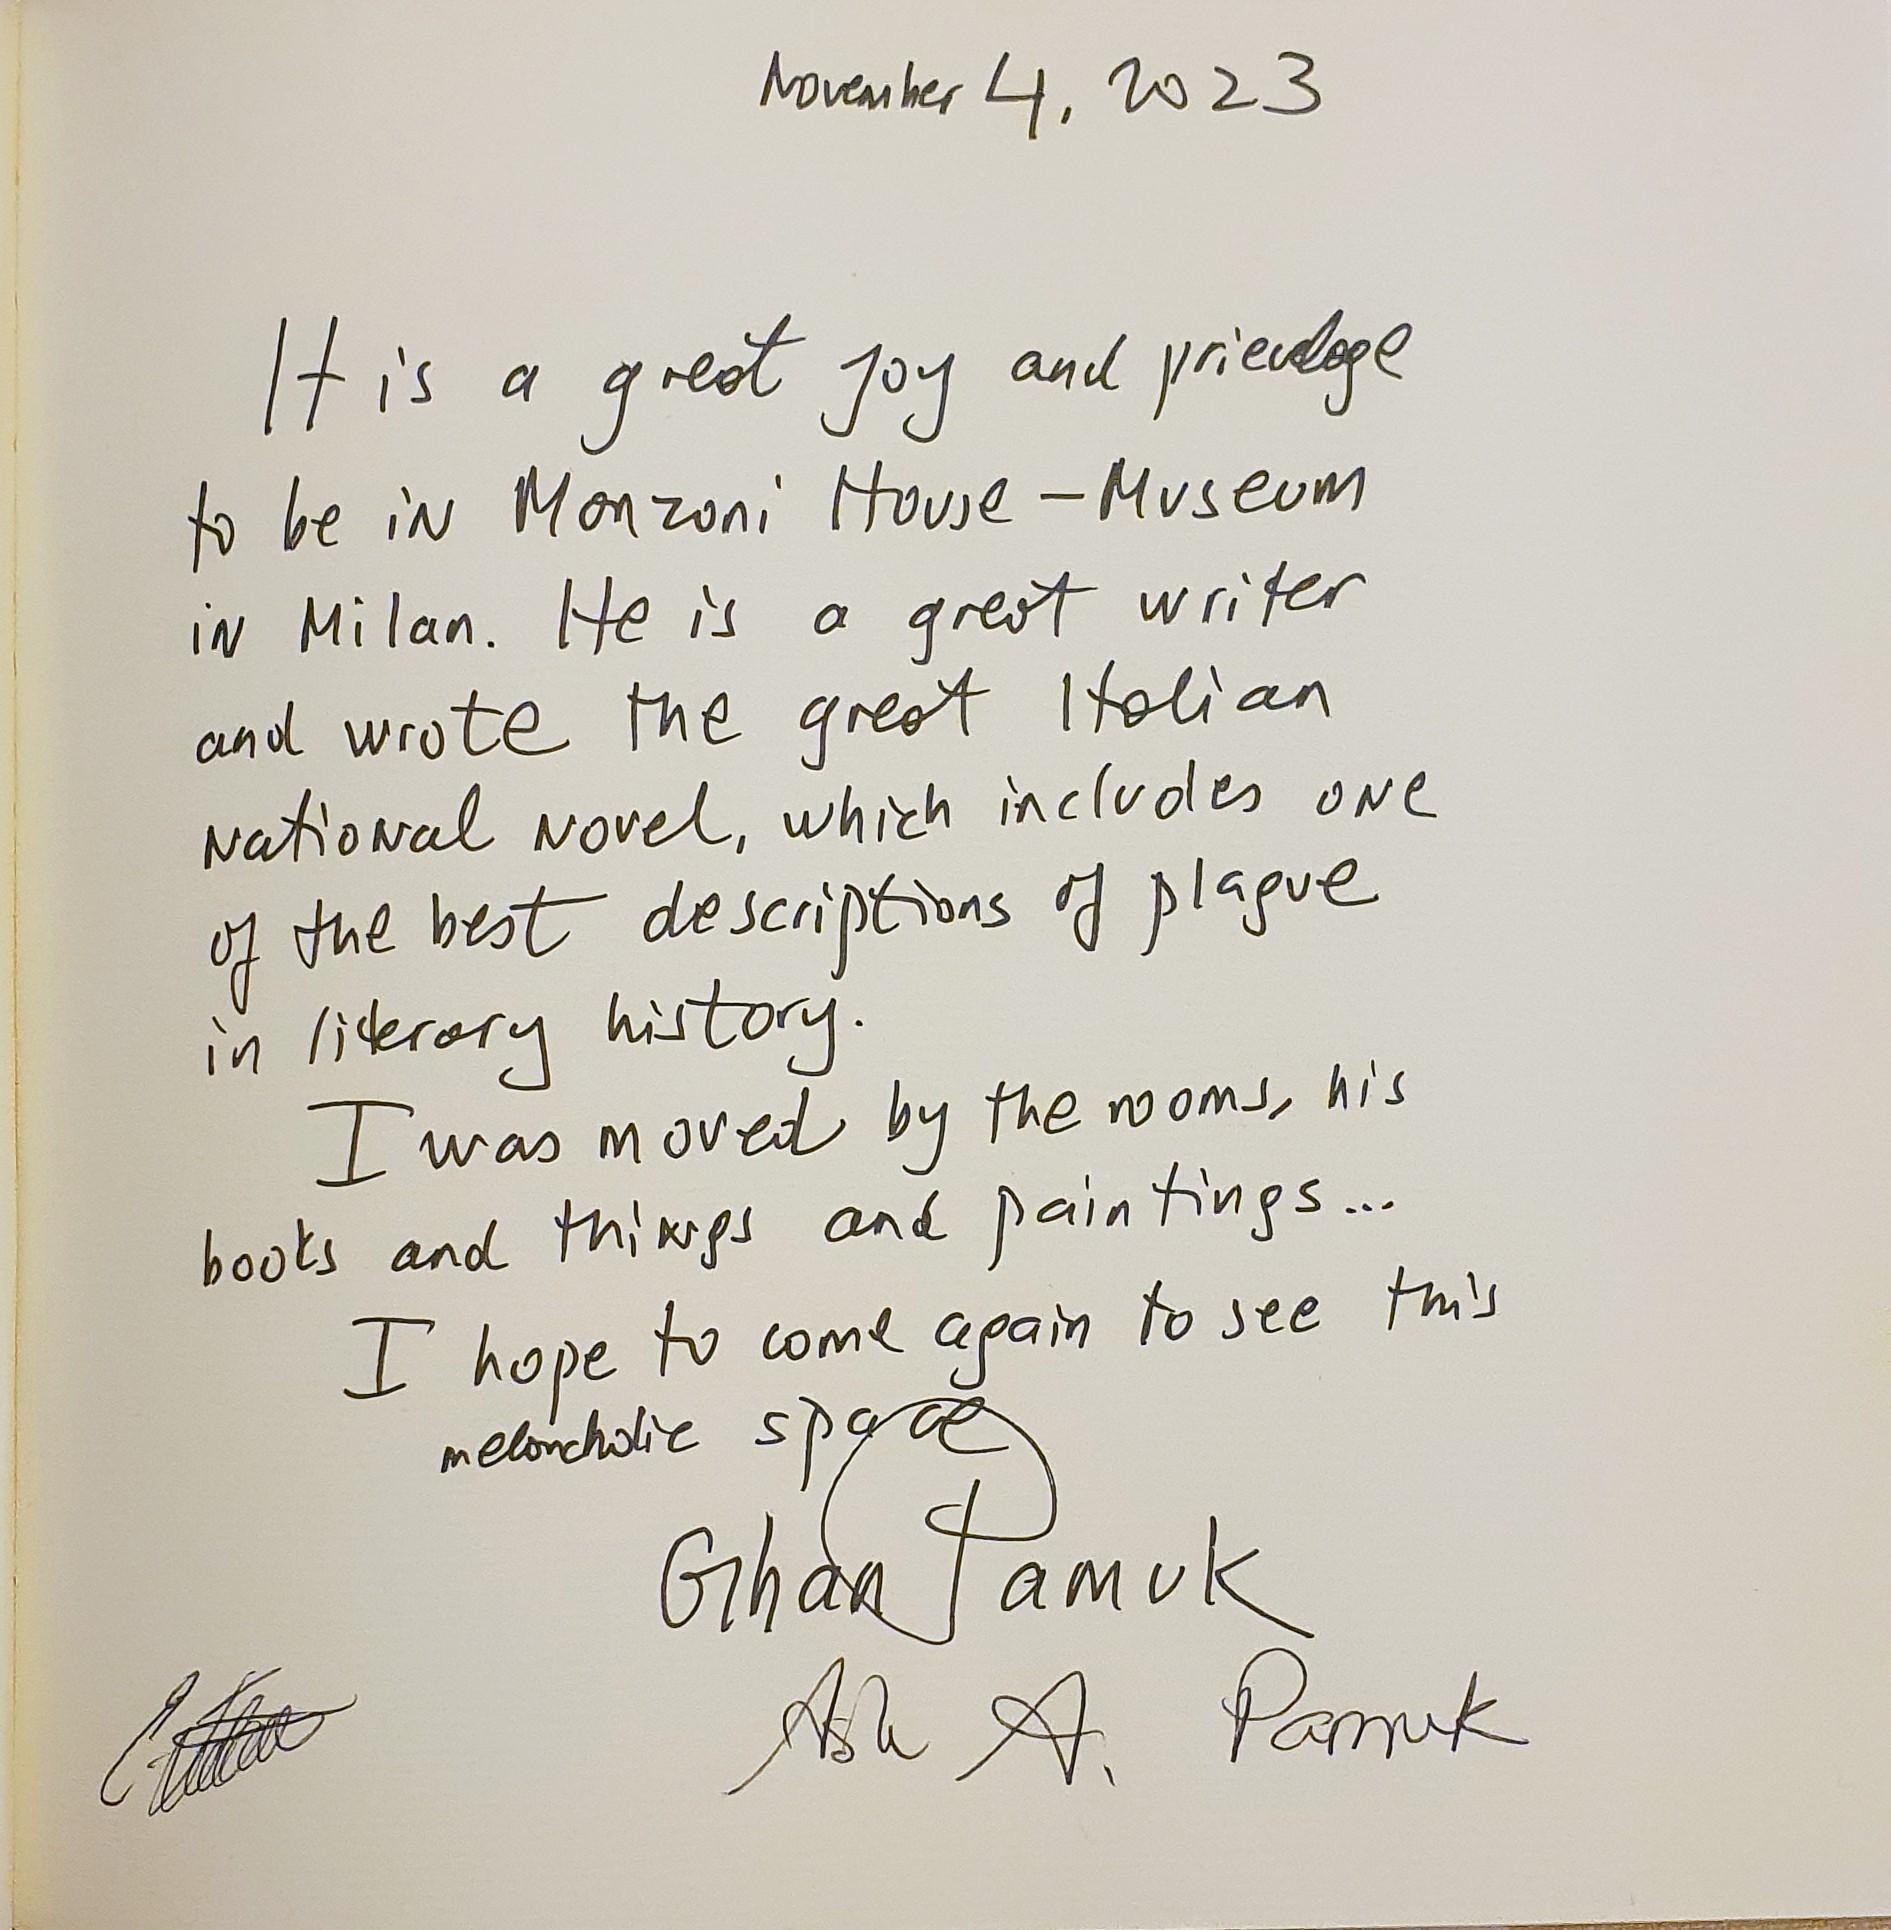 November 4, 2023
It is a great joy and prievelege
to be in Manzoni House - Museum
in Milan. He is a great writer
and wrote the great Italian
national novel, which includes one
of the best descriptions of plague
in literary history.
I was moved by the rooms, his
books and things and paintings...
I hope to come again to see this
melancholic space
Orhan Pamuk
Aslı A. Pamuk